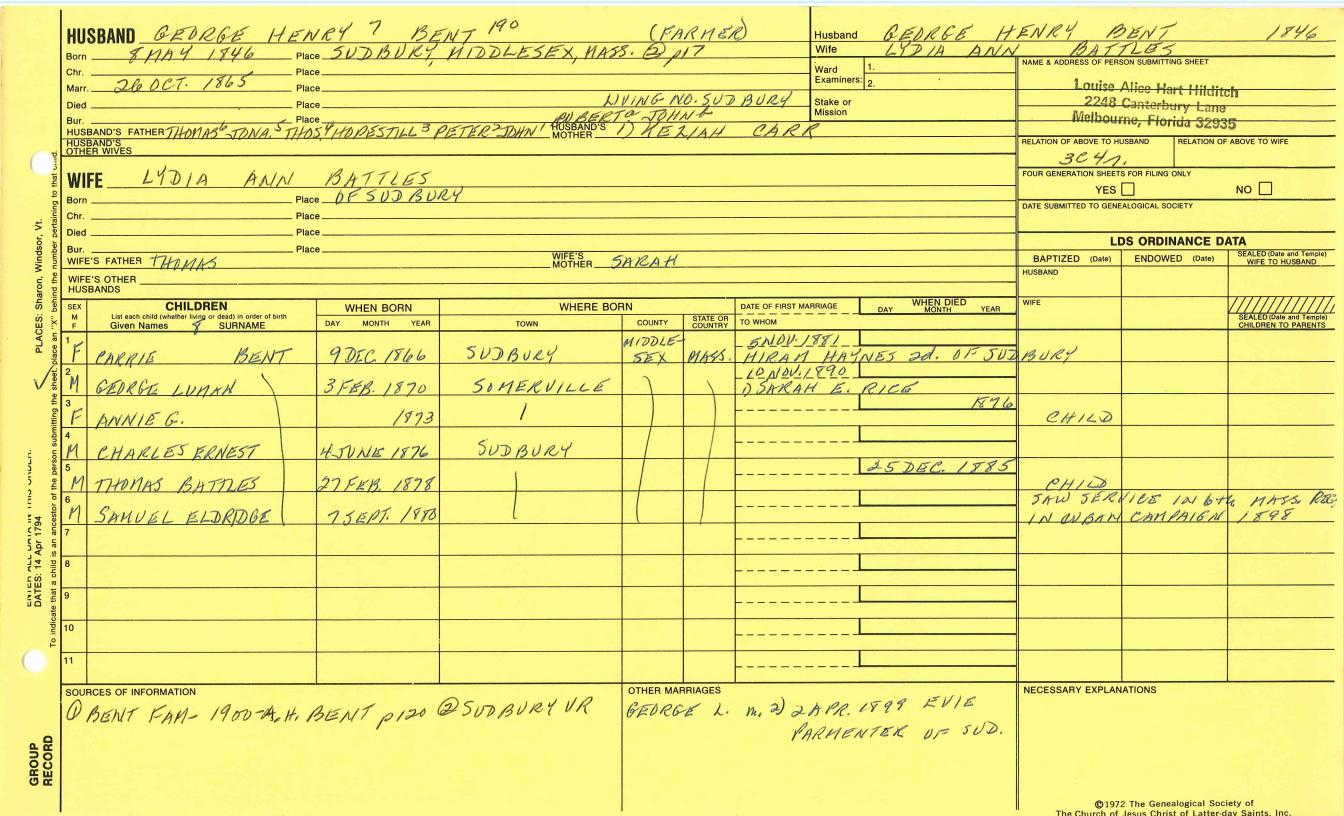 HUSBAND GEORGE HENRY 7 BENT 190 (FARMER)
Born 8 MAY 1846 Place SUDBURY, MIDDLESEX, MASS. ② p17
Chr. Place
Marr. 26 OCT. 1865 Place
Died Place LIVING NO. SUDBURY
Bur. Place ROBERT a JOHN b
HUSBAND'S FATHER THOMAS 6 JONA. 5 THOS 4 HOPESTILL 3 PETER 2 JOHN 1 HUSBAND'S MOTHER 1) KEZIAH CARR
HUSBAND'S OTHER WIVES
Husband GEORGE HENRY BENT 1846
Wife LYDIA ANN BATTLES
Ward Examiners: 1.
2.
Stake or Mission
NAME & ADDRESS OF PERSON SUBMITTING SHEET
Louise Alice Hart Hilditch
2248 Canterbury Lane
Melbourne, Florida 32935
RELATION OF ABOVE TO HUSBAND RELATION OF ABOVE TO WIFE
3C4r.
FOUR GENERATION SHEETS FOR FILING ONLY
YES NO
DATE SUBMITTED TO GENEALOGICAL SOCIETY
WIFE LYDIA ANN BATTLES
Born Place OF SUDBURY
Chr. Place
Died Place
Bur. Place
WIFE'S FATHER THOMAS WIFE'S MOTHER SARAH
WIFE'S OTHER HUSBANDS
LDS ORDINANCE DATA
BAPTIZED (Date) ENDOWED (Date) SEALED (Date and Temple) WIFE TO HUSBAND
HUSBAND
WIFE
SEALED (Date and Temple) CHILDREN TO PARENTS
SEX M F CHILDREN WHEN BORN WHERE BORN DATE OF FIRST MARRIAGE WHEN DIED
List each child (whether living or dead) in order of birth
Given Names 8 SURNAME DAY MONTH YEAR TOWN COUNTY STATE OR COUNTRY TO WHOM DAY MONTH YEAR
1 F CARRIE BENT 9 DEC. 1866 SUDBURY MIDDLE-SEX MASS. 5 NOV. 1881 HIRAM HAYNES 2d. OF SUDBURY
2 M GEORGE LUMAN 3 FEB. 1870 SOMERVILLE 10 NOV. 1890 1) SARAH E. RICE
3 F ANNIE G. 1873 1876 CHILD
4 M CHARLES ERNEST 4 JUNE 1876 SUDBURY
5 M THOMAS BATTLES 27 FEB. 1878 25 DEC. 1885 CHILD
6 M SAMUEL ELDRIDGE 7 SEPT. 1880 SAW SERVICE IN 6th MASS REG. IN CUBAN CAMPAIGN 1898
7
8
9
10
11
SOURCES OF INFORMATION
① BENT FAM - 1900 - A.H. BENT p120 ② SUDBURY VR
OTHER MARRIAGES
GEORGE L. m. 2) 2 APR. 1899 EVIE
PARMENTER OF SUD.
NECESSARY EXPLANATIONS
©1972 The Genealogical Society of
The Church of Jesus Christ of Latter-day Saints, Inc.
PLACES: Sharon, Windsor, Vt.
ENTER ALL DATA IN THIS ORDER:
DATES: 14 Apr 1794
To indicate that a child is an ancestor of the person submitting the sheet, place an "X" behind the number pertaining to that child.
GROUP RECORD